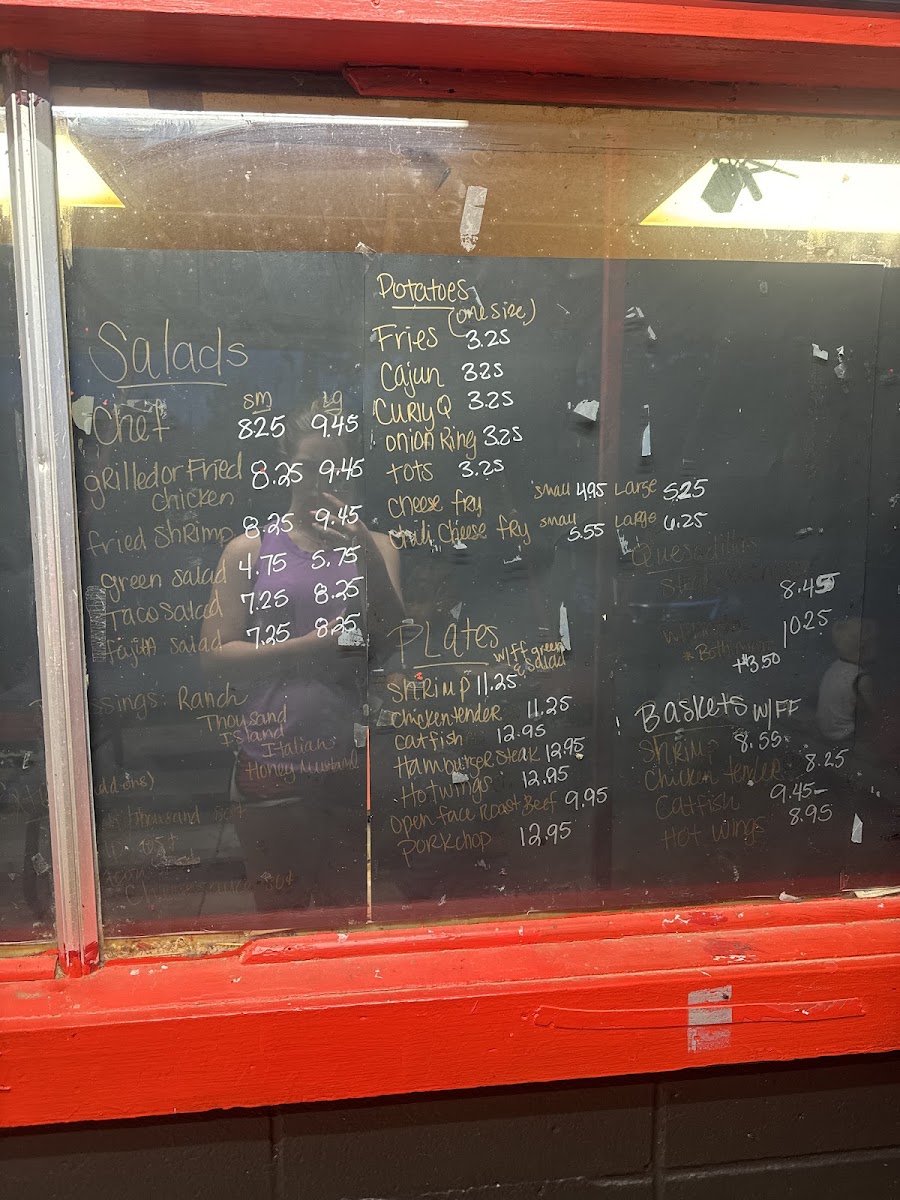 Salads
sm lg
Chef 825 9.45
grilled or Fried 8.25 9.45
chicken
fried shrimp 8.25 9.45
green salad 4.75 5.75
Taco Salad 7.25 8.25
fajita salad 7.25 8.25
sings: Ranch
Thousand
Island
Italian
Honey Mustard
dd-ons)
Thousand
Potatoes
(one size)
Fries 3.25
Cajun 325
CURLY Q 3.25
onion Ring 3.25
tots 3.25
cheese fry small 495 Large 525
chili cheese fry small 5.55 Large 6.25
PLates
w/ff green
& salad
Shrimp 11.25
chicken tender 11.25
catfish 12.95
Hamburger Steak 12.95
Hot wings 12.95
open face Roast Beef 9.95
porkchop 12.95
Quesadillas
8.45
10.25
*Both
+$3.50
Baskets w/FF
Shrimp 8.55
Chicken tender 8.25
Catfish 9.45
Hot wings 8.95